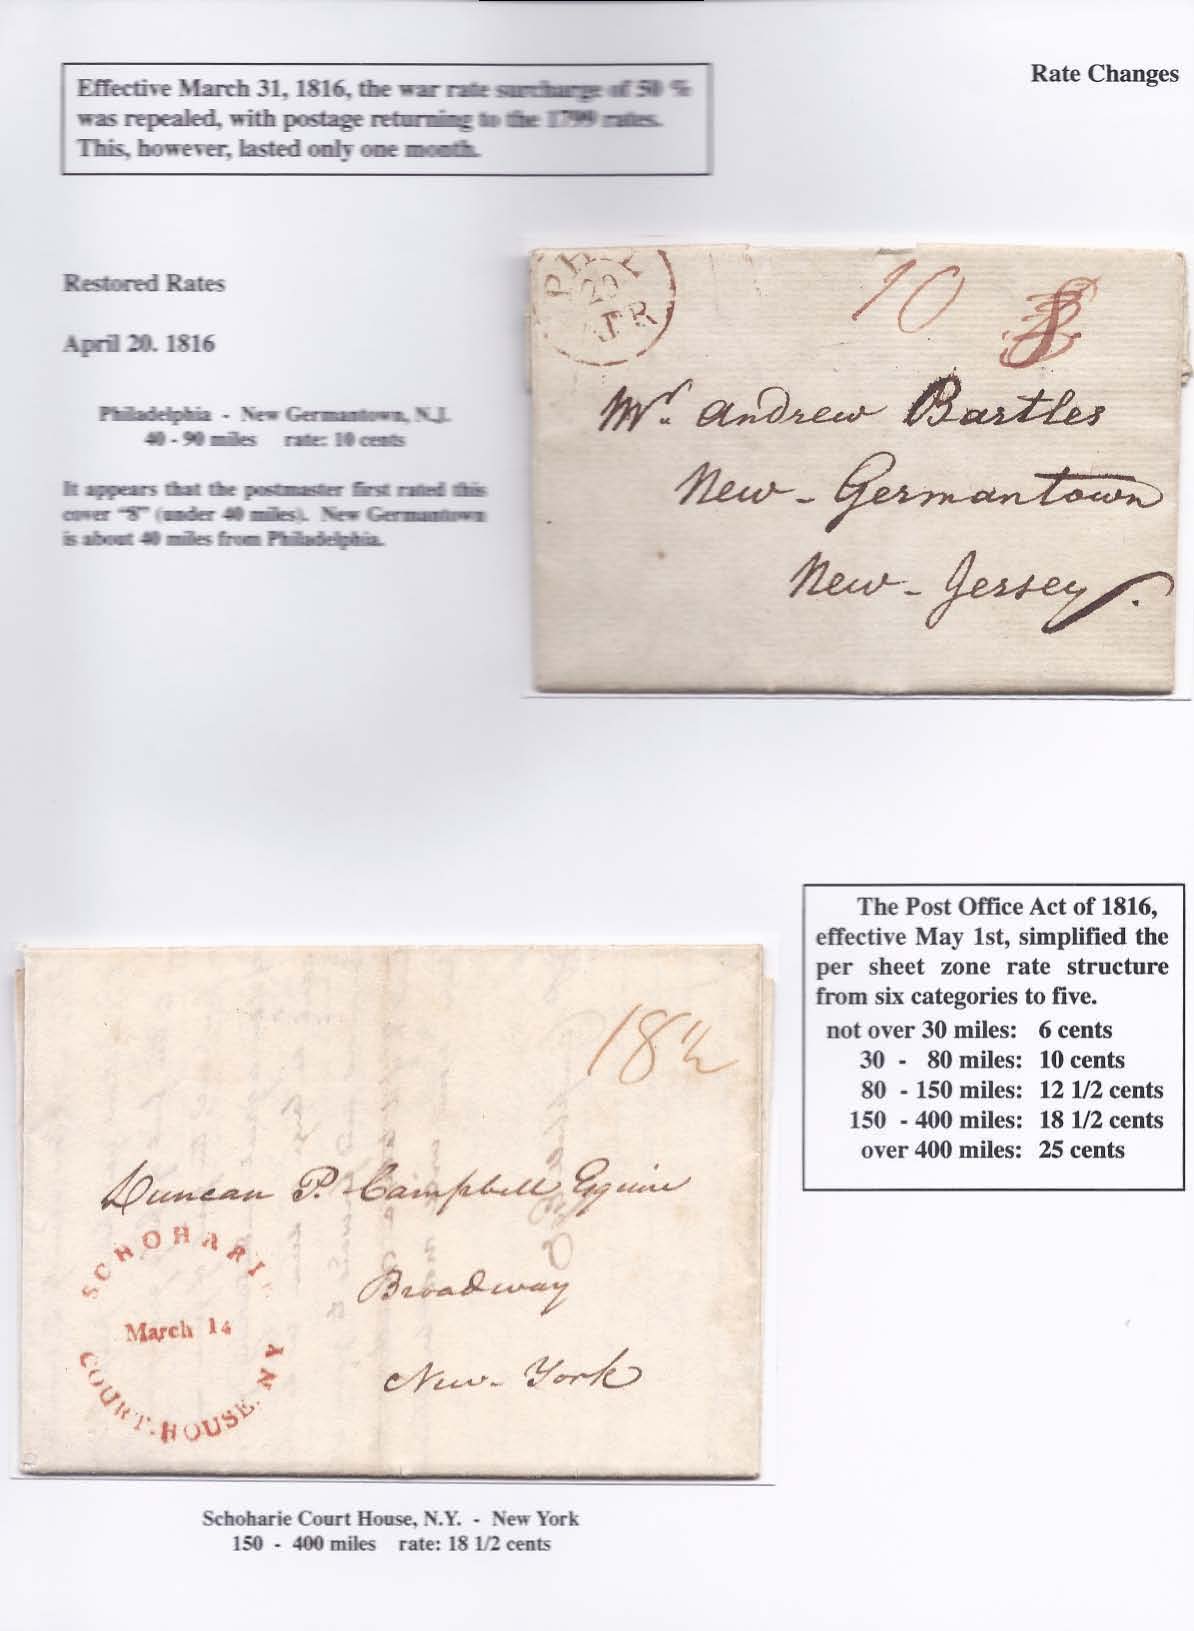 Rate Changes
Effective March 31, 1816, the war rate surcharge of 50 %
was repealed, with postage returning to the 1799 rates.
This, however, lasted only one month.
Restored Rates
April 20. 1816
Philadelphia - New Germantown, N.J.
40 - 90 miles rate: 10 cents
It appears that the postmaster first rated this
cover "8" (under 40 miles). New Germantown
is about 40 miles from Philadelphia.
PHI
20
APR
10
Mr. Andrew Bartles
New - Germantown
New - Jersey
The Post Office Act of 1816,
effective May 1st, simplified the
per sheet zone rate structure
from six categories to five.
not over 30 miles: 6 cents
30 - 80 miles: 10 cents
80 - 150 miles: 12 1/2 cents
150 - 400 miles: 18 1/2 cents
over 400 miles: 25 cents
18 1/2
Duncan P. Campbell Esquire
Broadway
New - York
SCHOHARIE
March 14
COURT-HOUSE. NY
Schoharie Court House, N.Y. - New York
150 - 400 miles rate: 18 1/2 cents